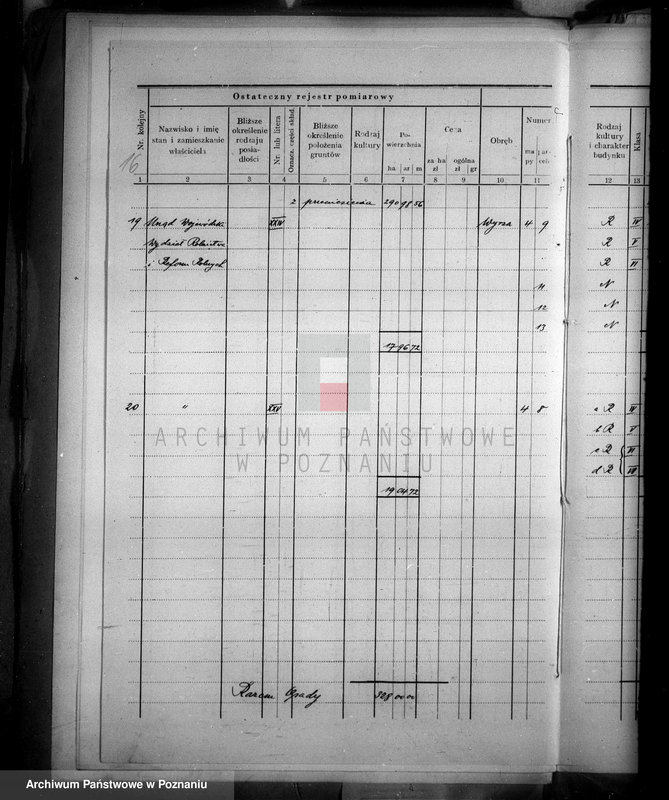 Ostateczny rejestr pomiarowy
Nr. kolejny
Nazwisko i imię stan i zamieszkanie właściciela
Bliższe określenie rodzaju posiadłości
Nr. lub litera
Oznacz. części skład.
Bliższe określenie położenia gruntów
Rodzaj kultury
Powierzchnia
ha ar m
Cena
za ha zł
ogólna zł gr
Obręb
Numer
mapy parceli
Rodzaj kultury i charakter budynku
Klasa
16
1 2 3 4 5 6 7 8 9 10 11 12 13
z przeniesienia 290 98 56
19 Urząd Wojewódzki XXIV Wyrza 4 9 R IV
Wydział Rolnictwa R V
i Reform Rolnych R VI
11 N
12 N
13 N
17 96 72
20 " XXV 4 8 a R IV
b R V
c R VI
d R VII
19 04 72
Razem Osady 328 00 00
ARCHIWUM PAŃSTWOWE
W POZNANIU
Archiwum Państwowe w Poznaniu